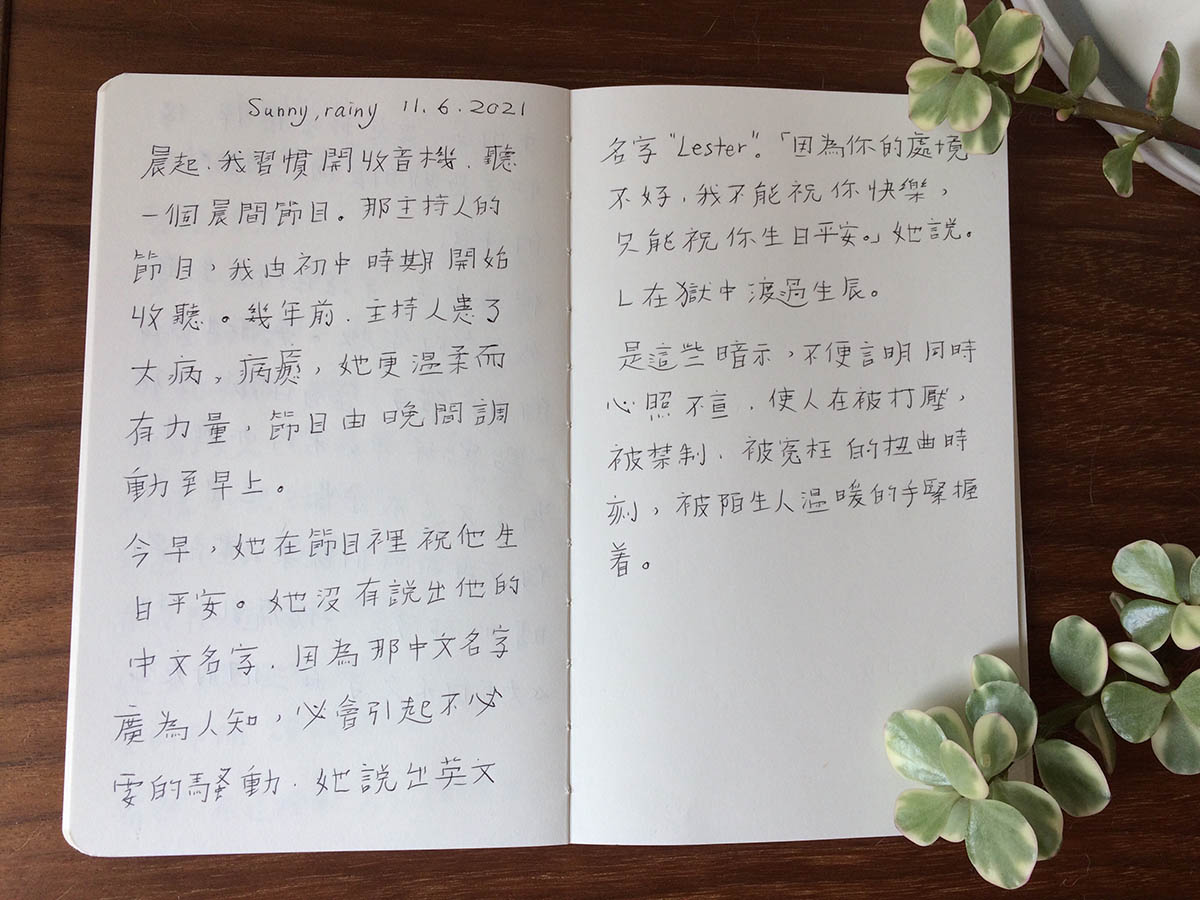 Sunny, rainy 11.6.2021
晨起,我習慣開收音機,聽
一個晨間節目。那主持人的
節目,我由初中時期開始
收聽。幾年前,主持人患了
大病。病癒,她更溫柔而
有力量,節目由晚間調
動至早上。
今早,她在節目裡祝他生
日平安。她沒有說出他的
中文名字,因為那中文名字
廣為人知,必會引起不必
要的騷動,她說出英文
名字"Lester"。「因為你的處境
不好,我不能祝你快樂,
只能祝你生日平安。」她說。
L在獄中渡過生辰。
是這些暗示,不便言明同時
心照不宣,使人在被打壓,
被禁制,被冤枉的扭曲時
刻,被陌生人溫暖的手緊握
着。